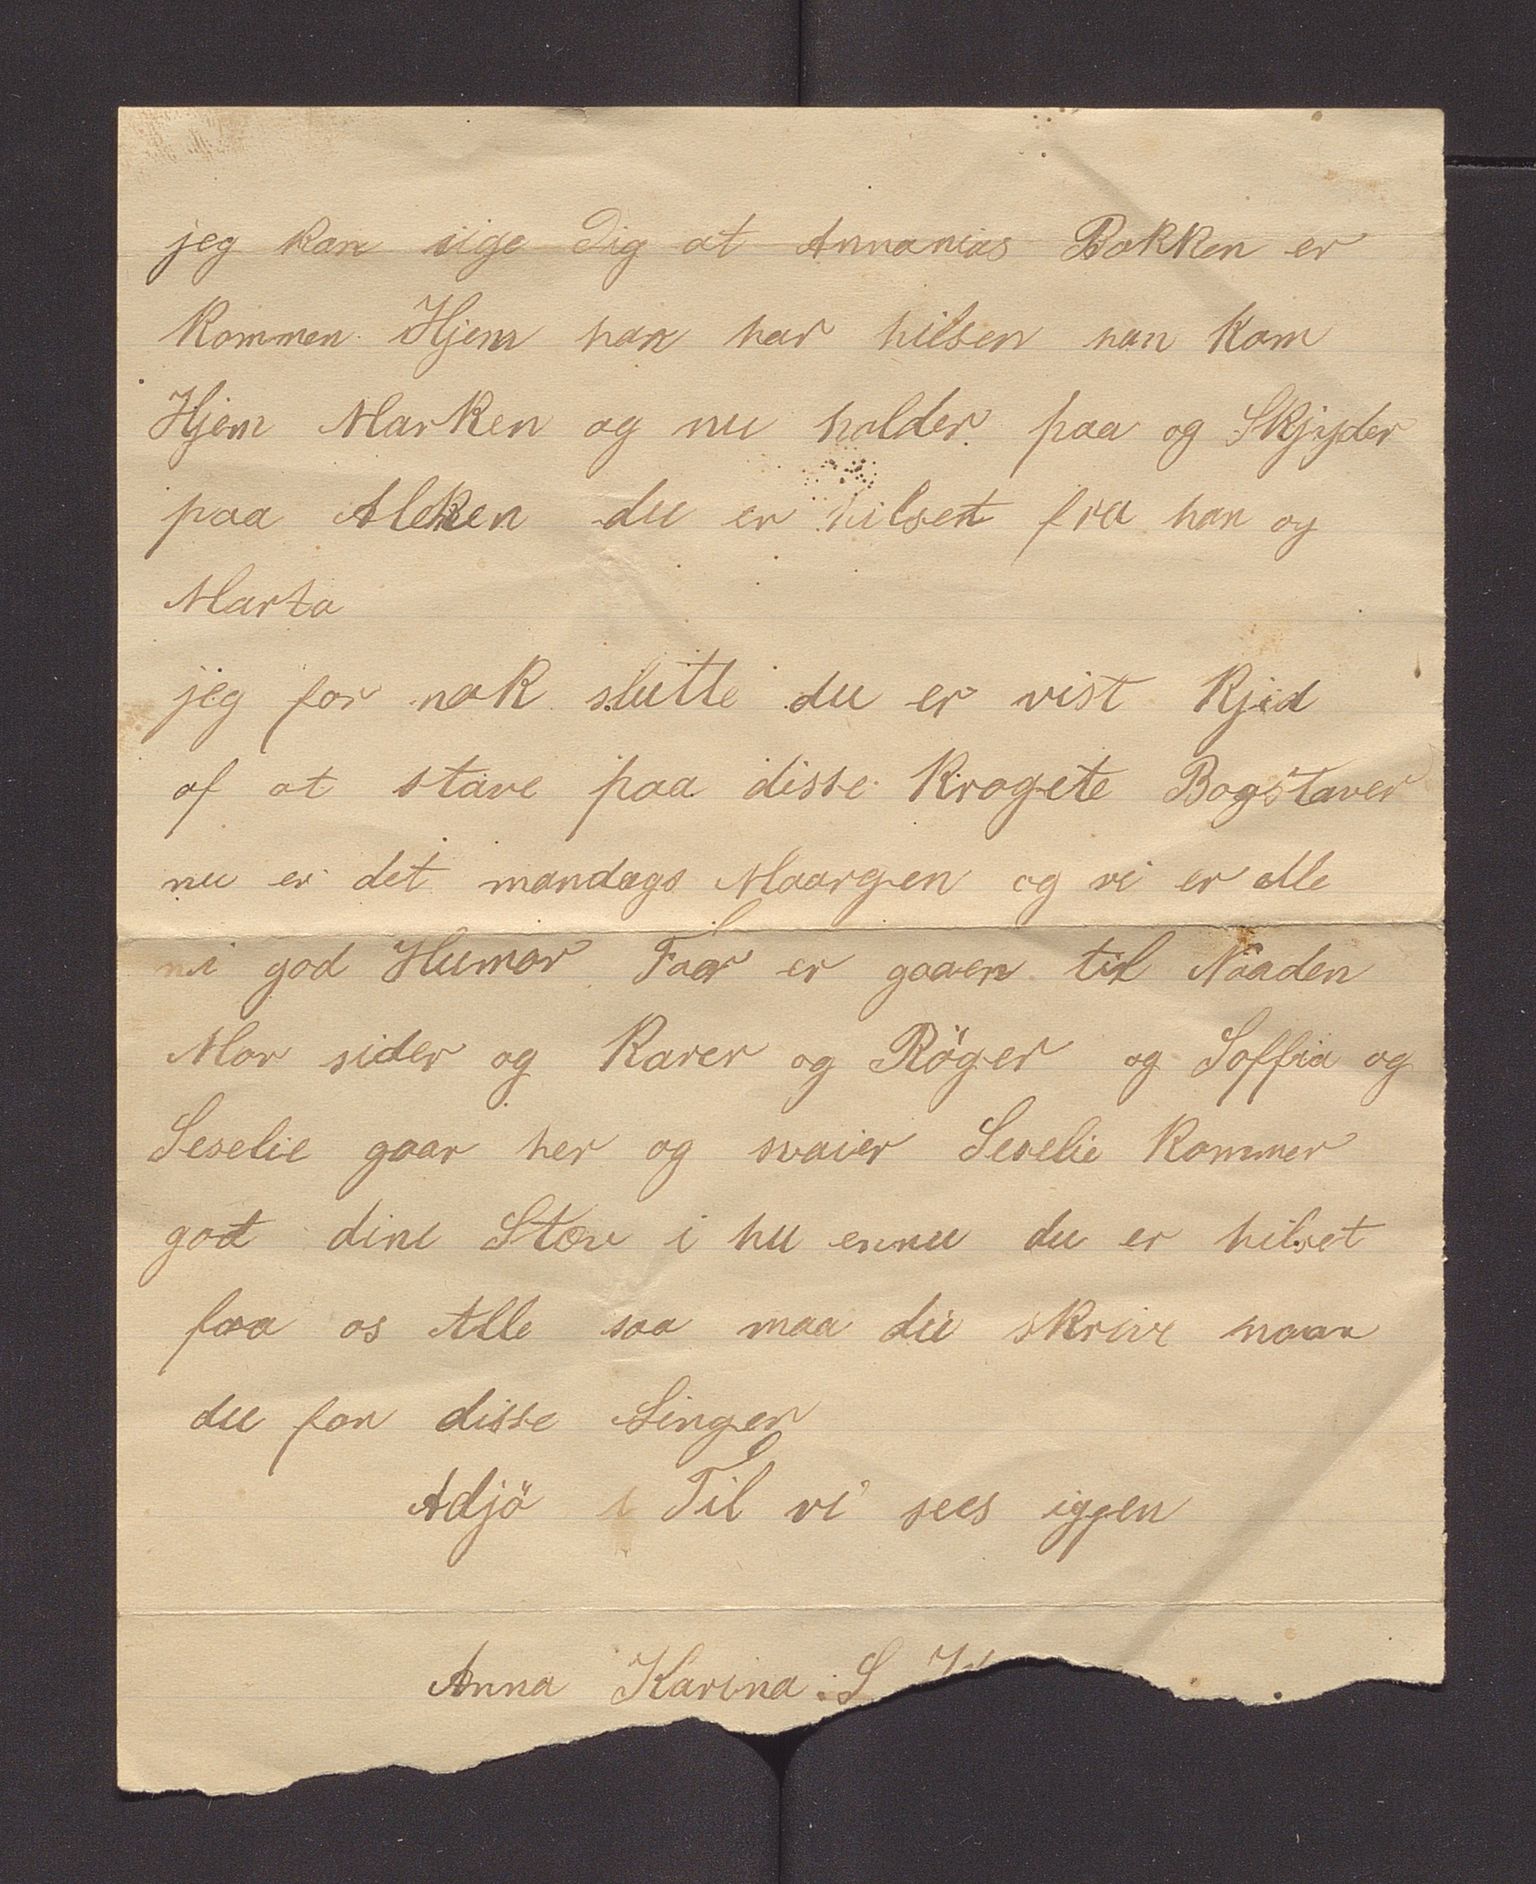 jeg kan sige Dig at Annanias Bakken er
kommen Hjem han har hilsen han kom
Hjem Marken og nu holder paa og Skjyder
paa Alken du er hilset fra han og
Marta
jeg for nok slutte du er vist kjed
af at stave paa disse krogete Bogstaver
nu er det mandags Maargen og vi er alle
i god Humor Faar er gaaen til Naaden
Mor sider og Karer og Röger og Soffia og
Seselie gaar her og svaier Seselie kommer
got dine Stæv i hu ennu du er hilset
fraa os Alle saa maa du skrive naar
du for disse Linger
Adjö i Til vi sees iggen
Anna Karina S